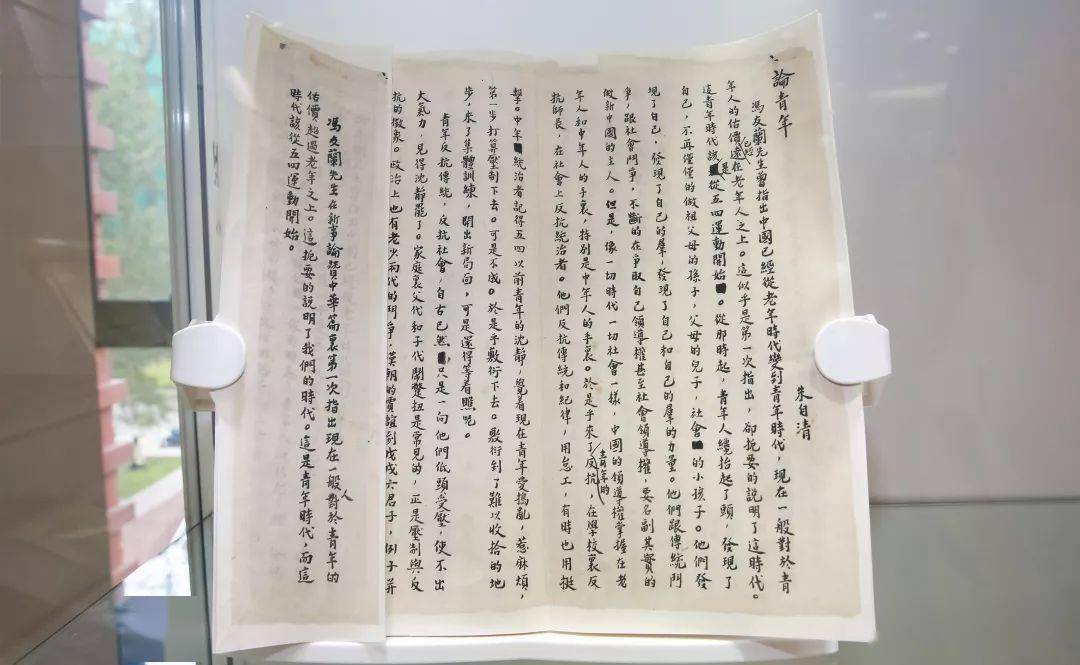 論青年
朱自清
馮友蘭先生曾指出中國已經從老年時代變到青年時代,現在一般對於青
年人的估價遠在老年人之上。這似乎是第一次指出,卻扼要的說明了這時代。
這青年時代該是從五四運動開始。從那時起,青年人纔抬起了頭,發現了
自己,不再僅僅的做祖父母的孫子,父母的兒子,社會的小孩子。他們發
現了自己,發現了自己的羣,發現了自己和自己的羣的力量。他們跟傳統鬥
爭,跟社會鬥爭,不斷的在爭取自己領導權甚至社會領導權,要名副其實的
做新中國的主人。但是,像一切時代一切社會一樣,中國的領導權掌握在老
年人和中年人的手裏,特別是中年人的手裏。於是乎來了青年的反抗,在學校裏反
抗師長,在社會上反抗統治者。他們反抗傳統和紀律,用怠工,有時也用挺
擊。中年統治者記得五四以前青年的沈靜,覺着現在青年愛搗亂,惹麻煩,
第一步打算壓制下去。可是不成。於是乎敷衍下去。敷衍到了難以收拾的地
步,來了集體訓練,開出新局面,可是還得等着瞧呢。
青年反抗傳統,反抗社會,自古已然,只是一向他們低頭受壓,使不出
大氣力,見得沈靜罷了。家庭裏父代和子代鬧彆扭是常見的,正是壓制與反
抗的徵象。政治上也有老少兩代的鬥爭,漢朝的賈誼到戊戌六君子,例子並
馮友蘭先生在新事論贊中華篇裏第一次指出現在一般人對於青年的
估價超過老年之上。這扼要的說明了我們的時代。這是青年時代,而這
時代該從五四運動開始。